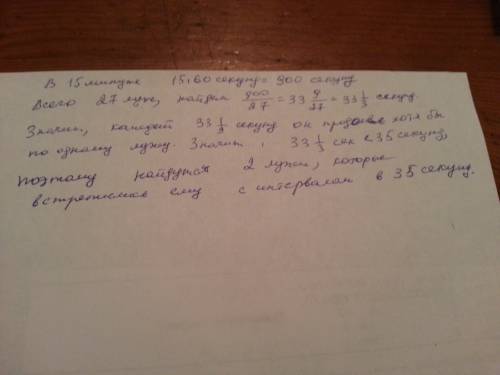 В 15 минуте 15·60 секунд = 900 секунд
Всего 27 луж, найдем 900/27 = 33 9/27 = 33 1/3 секунд
Значит, каждой 33 1/3 секунд он хотя бы
по одному лужу. Значит, 33 1/3 сек < 35 секунд,
поэтому найдутся 2 лужи, которые
встретились ему с интервалом в 35 секунд.